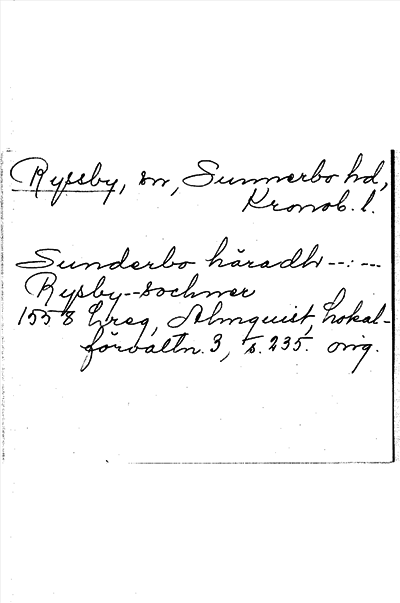 Ryssby, sn, Sunnerbo hd,
Kronob. l.
Sunderbo häradh --:---
Rysby -- sochner
1558 Lreg, Almquist, Lokal-
förvaltn. 3, s. 235. orig.